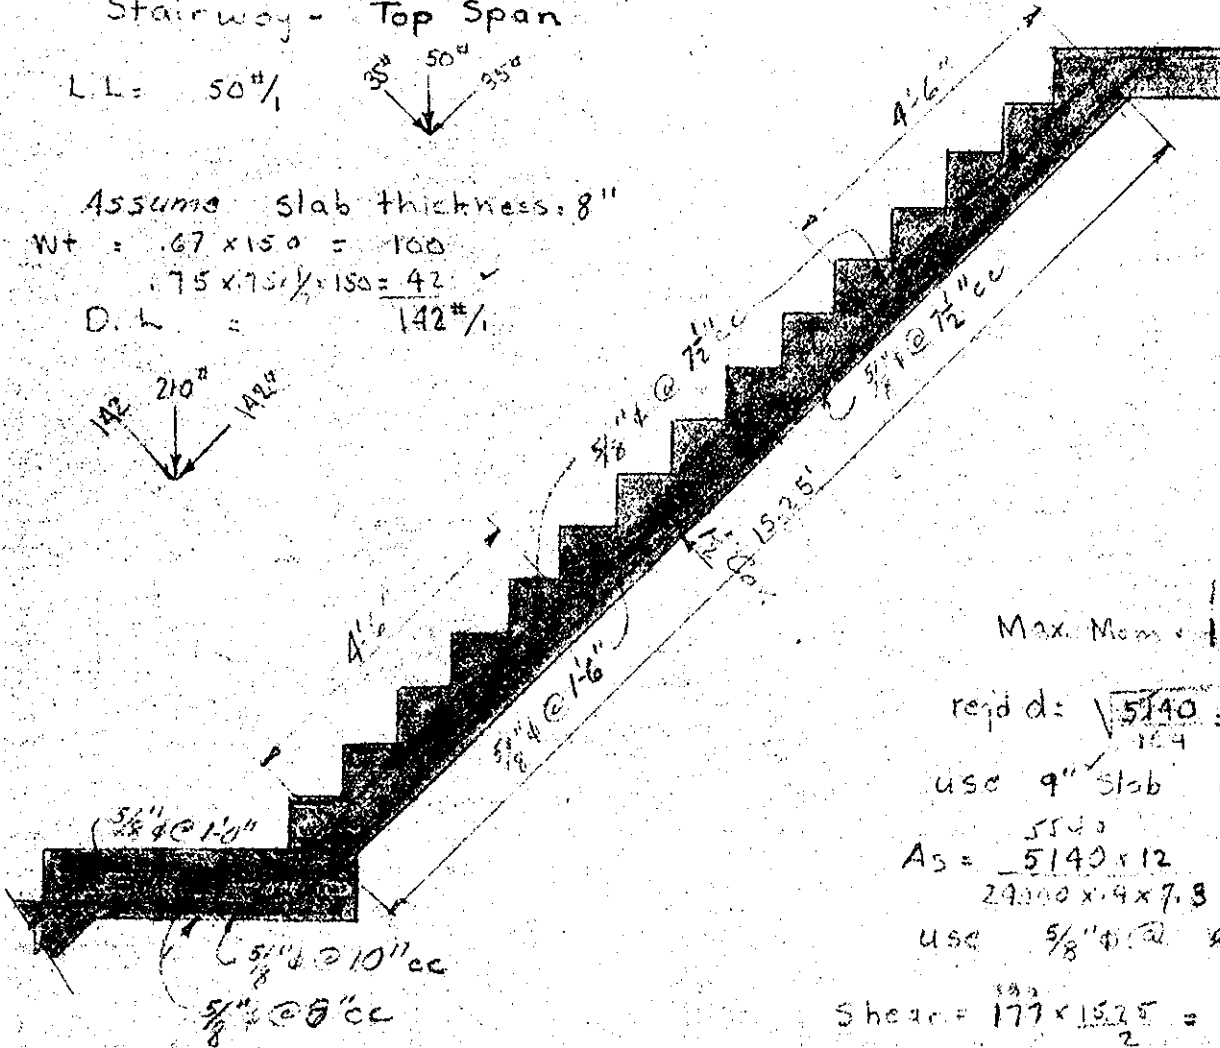 Stairway - Top Span
L.L = 50#/,
35# 50# 35#
Assume slab thickness = 8"
Wt = .67 x 150 = 100
.75 x .75 x ½ x 150 = 42 ✓
D.L = 142#/,
142 210# 142#
4'-6"
5/8"ϕ @ 7½" cc
5/8"ϕ @ 7½" cc
15.25'
4'-6"
5/8"ϕ @ 1'-6"
5/8"ϕ @ 1'-0"
5/8"ϕ @ 10" cc
5/8"ϕ @ 8" cc
Max. Mom =
req'd d = √5140/164 =
use 9" slab
5540
As = 5140 x 12
x .9 x 7.3
use 5/8"ϕ @
Shear = 177 x 15.25/2 =